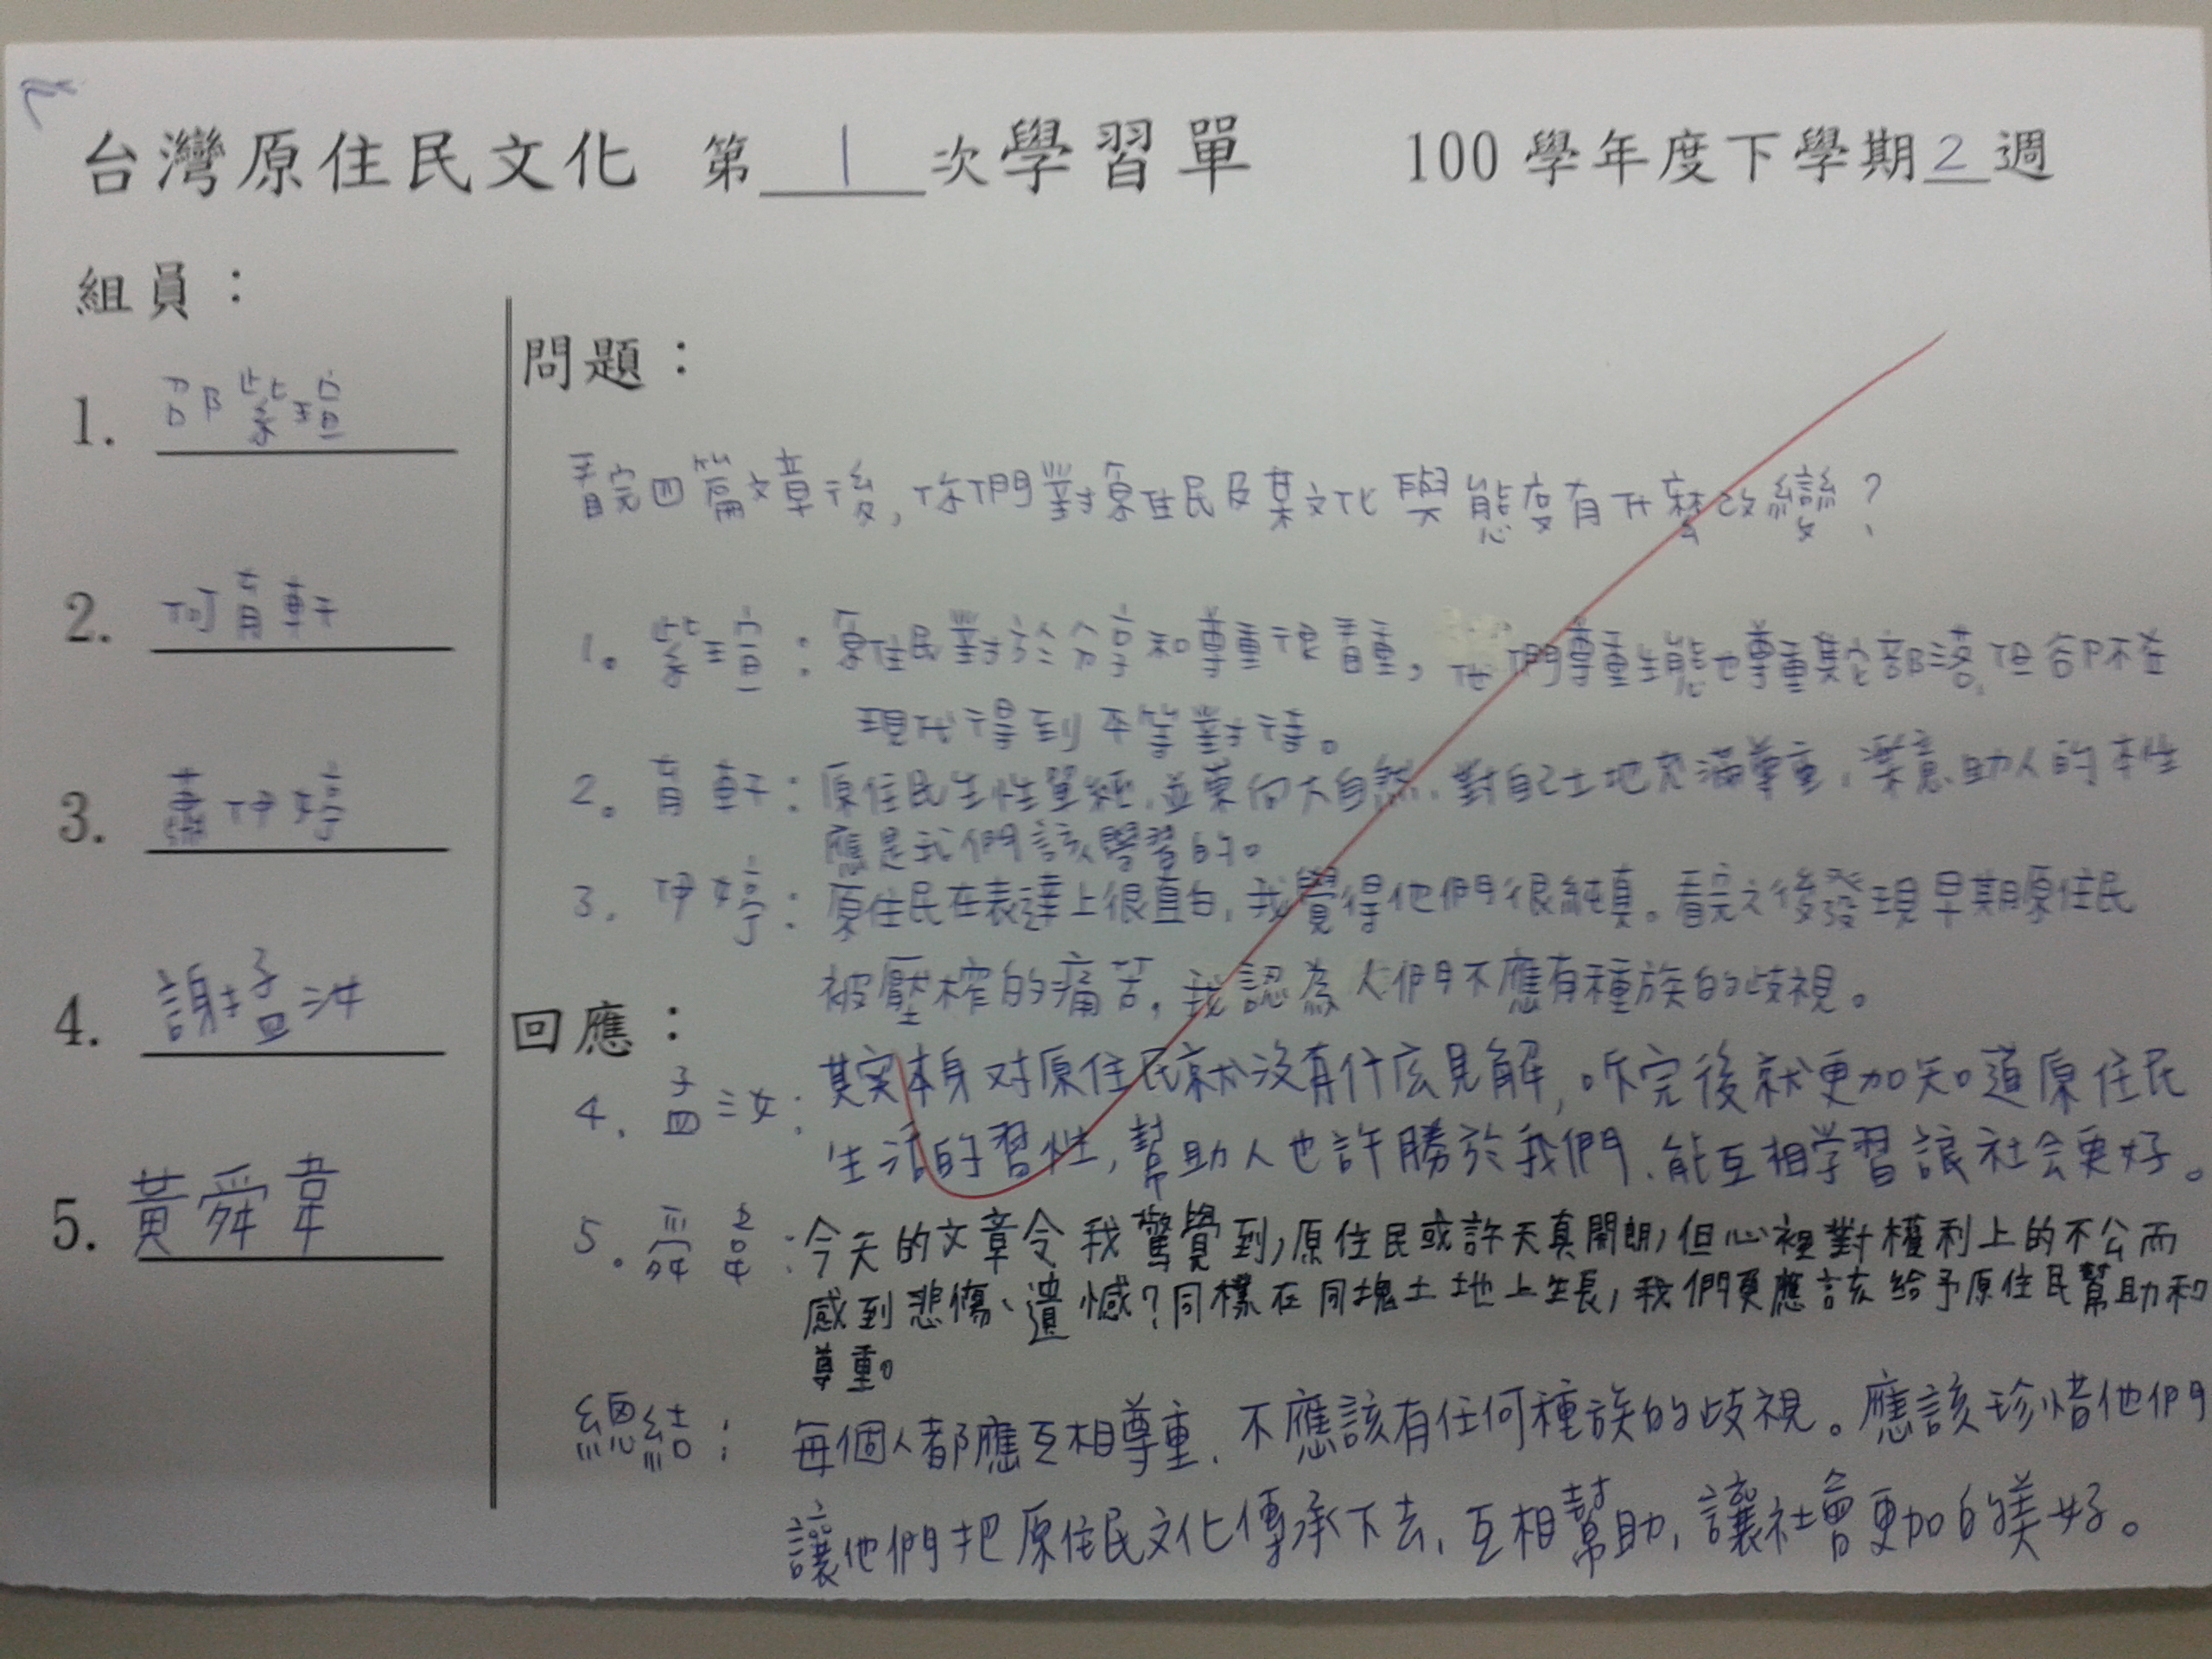 台灣原住民文化 第 1 次學習單 100學年度下學期2週
組員：
1. 邵紫瑄
2. 何育軒
3. 蕭伊婷
4. 謝孟汝
5. 黃舜韋
問題：
看完四篇文章後，你們對原住民及其文化與態度有什麼改變？
1。紫瑄：原住民對於分享和尊重很看重，他們尊重生態也尊重其它部落，但卻不在
現代得到平等對待。
2。育軒：原住民生性單純，並崇向大自然，對自己土地充滿尊重，樂意助人的本性
應是我們該學習的。
3. 伊婷：原住民在表達上很直白，我覺得他們很純真。看完之後發現早期原住民
被壓榨的痛苦，我認為人們不應有種族的歧視。
回應：
4. 孟汝：其实本身对原住民就没有什么見解，听完後就更加知道原住民
生活的習性，幫助人也許勝於我們，能互相学習讓社会更好。
5。舜韋：今天的文章令我驚覺到，原住民或許天真開朗，但心裡對權利上的不公而
感到悲傷、遺憾？同樣在同塊土地上生長，我們更應該給予原住民幫助和
尊重。
總結：每個人都應互相尊重，不應該有任何種族的歧視。應該珍惜他們
讓他們把原住民文化傳承下去，互相幫助，讓社會更加的美好。